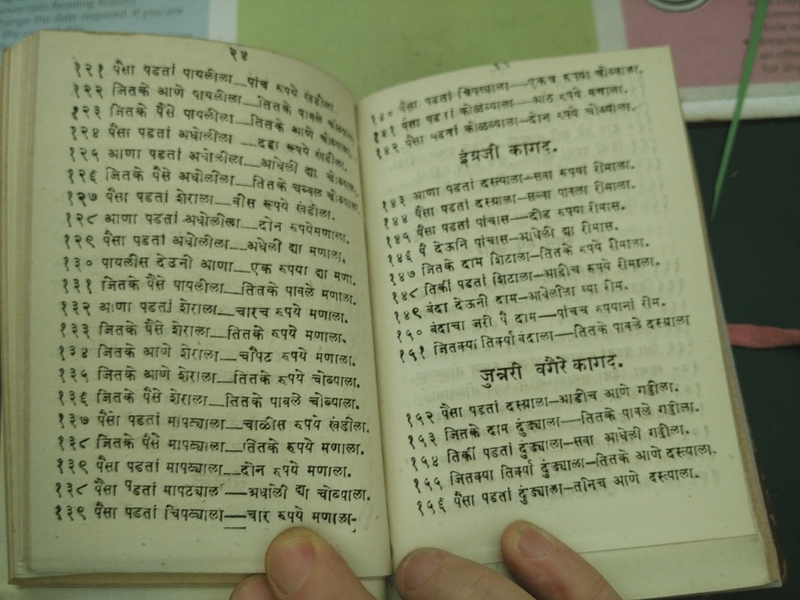 २४
१२१ पैसा पडतां पायलीला—पांच रूपये खंडीला.
१२२ जितके आणे पायलीला—तितके पावले चोब्याला.
१२३ जितके पैसे पायलीला—तितके आणे चोब्याला.
१२४ पैसा पडतां अधोलीला—दहा रूपये खंडीला.
१२५ आणा पडतां अधोलीला—आधेली द्या चोब्याला.
१२६ जितके पैसे अधोलीला—तितके चव्वल चोब्याला.
१२७ पैसा पडतां शेराला—वीस रूपये खंडीला.
१२८ आणा पडतां अधोलीला—दोन रूपयेमणाला.
१२९ पैसा पडतां अधोलीला—अधेली द्या मणाला.
१३० पायलीस देउनी आणा—एक रूपया द्या मणा.
१३१ जितके पैसे पायलीला—तितके पावले मणाला.
१३२ आणा पडतां शेराला—चारच रूपये मणाला.
१३३ जितके पैसे शेराला—तितके रूपये मणाला.
१३४ जितके आणे शेराला—चौपट रूपये मणाला.
१३५ जितके आणे शेराला—तितके रूपये चोब्याला.
१३६ जितके पैसे शेराला—तितके पावले चोब्याला.
१३७ पैसा पडतां मापट्याला—चाळीस रूपये खंडीला.
१३८ जितके पैसे मापट्याला—तितके रूपये मणाला.
१३९ पैसा पडतां मापट्याला—दोन रूपये मणाला.
१३८ पैसा पडतां मापट्याला—अधोली द्या चोब्याला.
१३९ पैसा पडतां चिपट्याला—चार रूपये मणाला-
१४० पैसा पडतां चिपट्याला—एकच रूपया चोब्याला.
१४१ पैसा पडतां कोळव्याला—आठ रूपये मणाला.
१४२ पैसा पडतां कोळव्याला—दोन रूपये चोब्याला.
इंग्रजी कागद.
१४३ आणा पडतां दस्त्याला—सवा रूपया रीमाला.
१४४ पैसा पडतां दस्त्याला—सव्वा पावला रीमाला.
१४५ पैसा पडतां पांचास—दीड रूपया रीमास.
१४६ पै देऊनि पांचास—आधेली द्या रीमास.
१४७ जितके दाम शिटाला—तितके रूपये रीमाला.
१४८ तिर्की पडतां शिटाला—आडीच रूपये रीमाला.
१४९ बंदा देऊनी दाम—आधेलीला घ्या रीम.
१५० बंदाचा जरी पै दाम—पांचच रूपयानां रीम.
१५१ जितक्या तिर्क्या बंदाला—तितके पावले दस्त्याला
जुन्नरी वगैरे कागद.
१५२ पैसा पडतां दस्त्याला—आडीच आणे गड्डीला.
१५३ जितके दाम दुंड्याला—तितके पावले गड्डीला.
१५४ तिर्की पडतां दुंड्याला—सवा आधेली गड्डीला.
१५५ जितक्या तिर्क्या दुंड्याला—तितके आणे दस्त्याला.
१५६ पैसा पडतां दुंड्याला—तीनच आणे दस्त्याला.